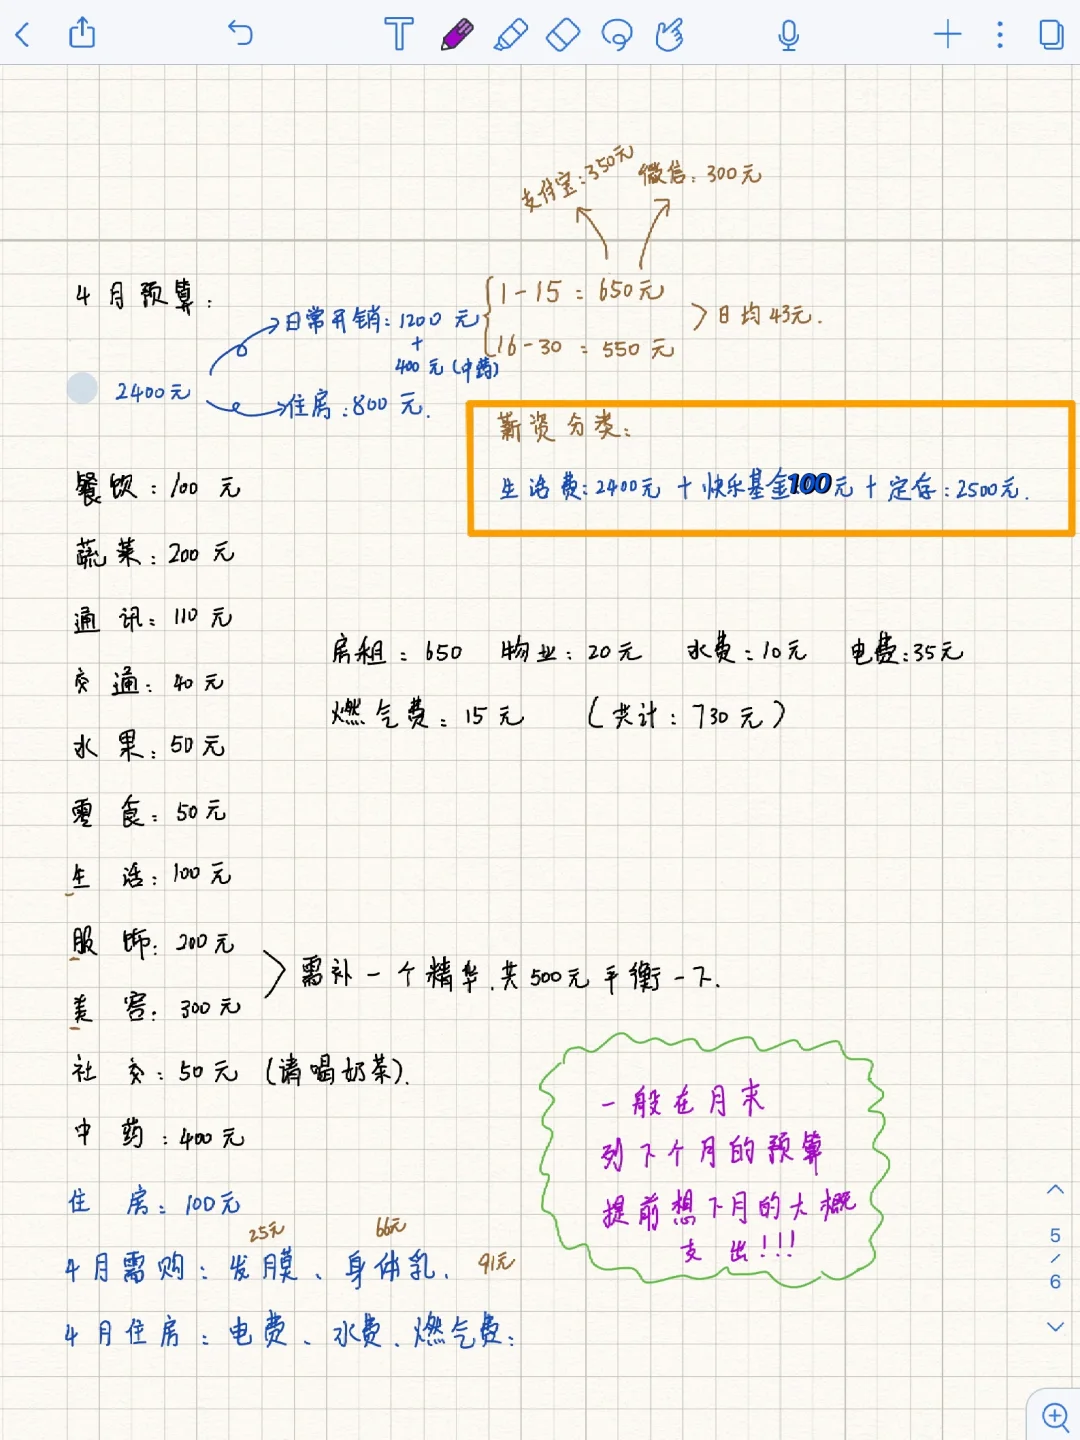 支付宝:350元 微信:300元
4月预算:
日常开销:1200元
+
400元(中药)
1-15=650元
16-30=550元
日均43元.
2400元
住房:800元.
薪资分类:
生活费:2400元+快乐基金100元+定存:2500元.
餐饮:100元
蔬菜:200元
通讯:110元
交通:40元
水果:50元
零食:50元
生活:100元
服饰:200元
美容:300元
需补一个精华.共500元平衡一下.
社交:50元(请喝奶茶).
中药:400元
住房:100元
房租:650 物业:20元 水费:10元 电费:35元
燃气费:15元 (共计:730元)
一般在月末
列下个月的预算
提前想下月的大概
支出!!!
25元 66元
4月需购:发膜、身体乳. 91元
4月住房:电费、水费.燃气费:
5
/
6